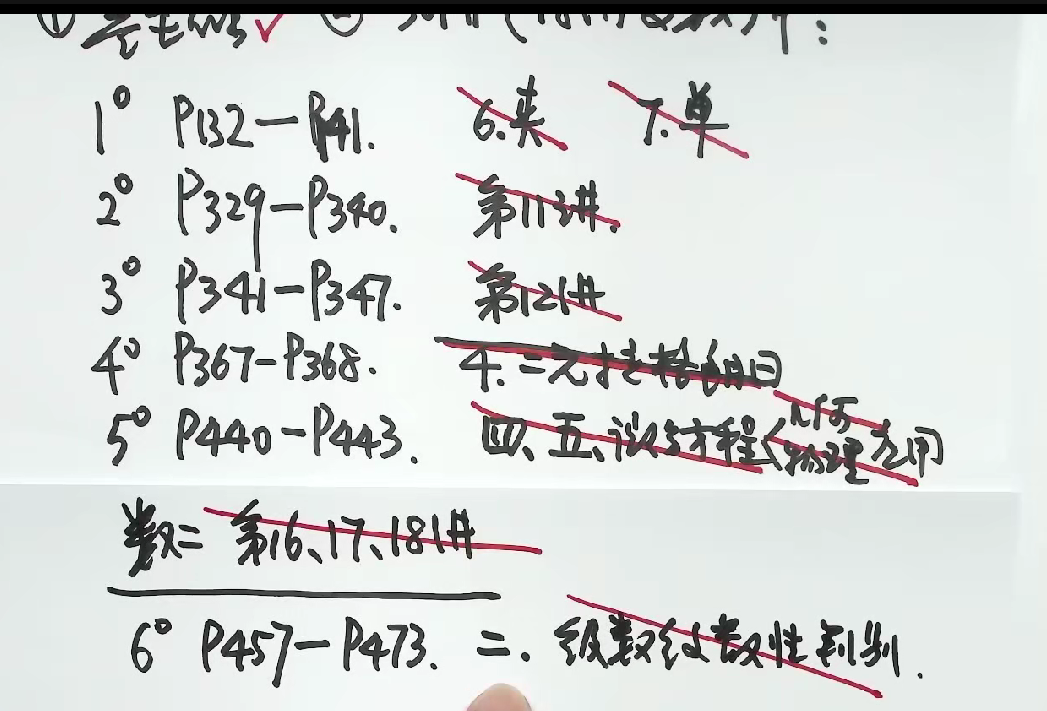 1° P132-P141. 6.夹 7.单
2° P329-P340. 第11讲.
3° P341-P347. 第12讲
4° P367-P368. 4.二元
5° P440-P443. 四、五、微分方程 物理应用
数二 第16、17、18讲
6° P457-P473. 二.级数敛散性判别.